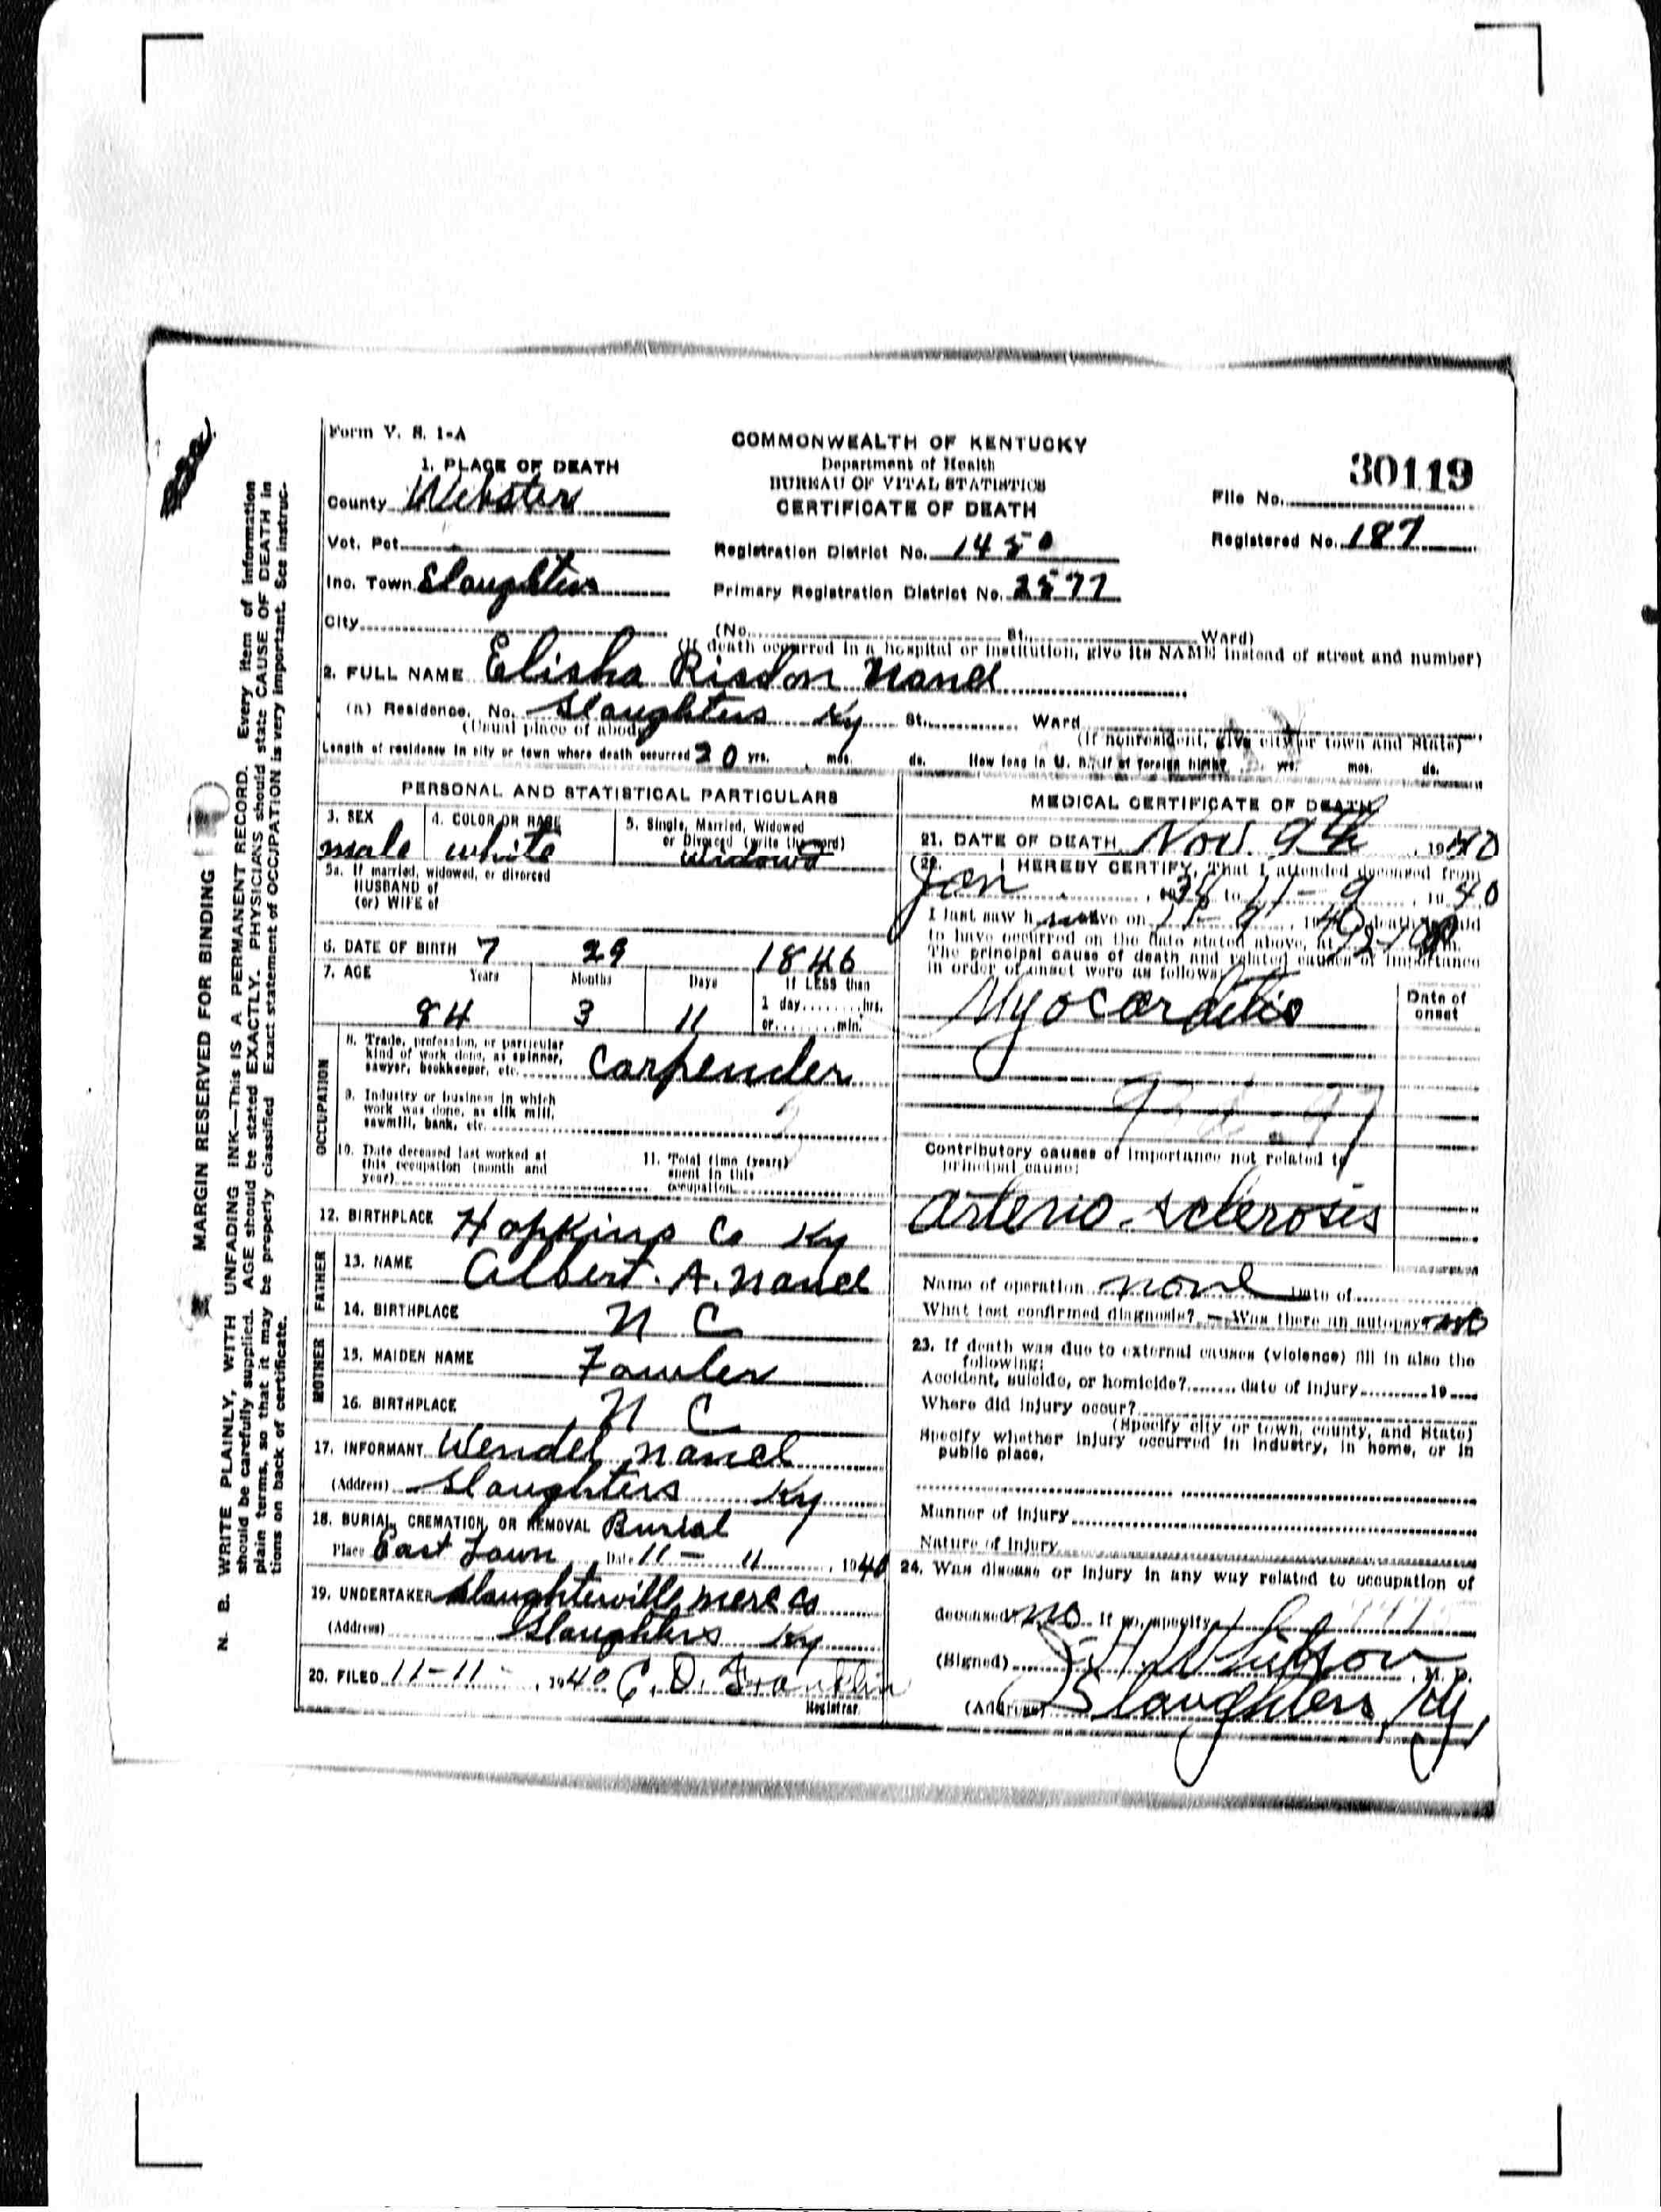 Form V. S. 1-A
COMMONWEALTH OF KENTUCKY
Department of Health
BUREAU OF VITAL STATISTICS
CERTIFICATE OF DEATH
30119
File No.
Registered No. 187
1. PLACE OF DEATH
County Webster
Vot. Pct.
Inc. Town Slaughters
City
Registration District No. 1450
Primary Registration District No. 2577
(No. St. Ward)
(If death occurred in a hospital or institution, give its NAME instead of street and number)
2. FULL NAME Elisha Risdon Nance
(a) Residence. No. Slaughters Ky St. Ward
(Usual place of abode) (If nonresident, give city or town and State)
Length of residence in city or town where death occurred 20 yrs. mos. ds. How long in U. S., if of foreign birth? yrs. mos. ds.
PERSONAL AND STATISTICAL PARTICULARS
3. SEX male
4. COLOR OR RACE white
5. Single, Married, Widowed or Divorced (write the word) widowed
5a. If married, widowed, or divorced
HUSBAND of
(or) WIFE of
6. DATE OF BIRTH 7 29 1846
7. AGE Years Months Days If LESS than
1 day hrs.
or min.
84 3 11
OCCUPATION
8. Trade, profession, or particular
kind of work done, as spinner,
sawyer, bookkeeper, etc. Carpender
9. Industry or business in which
work was done, as silk mill,
sawmill, bank, etc.
10. Date deceased last worked at
this occupation (month and
year)
11. Total time (years)
spent in this
occupation
12. BIRTHPLACE Hopkins Co Ky
FATHER
13. NAME Albert. A. Nance
14. BIRTHPLACE N C
MOTHER
15. MAIDEN NAME Fowler
16. BIRTHPLACE N C
17. INFORMANT Wendel Nance
(Address) Slaughters Ky
18. BURIAL, CREMATION, OR REMOVAL Burial
Place East Lawn Date 11 - 11, 1940
19. UNDERTAKER Slaughterville merc co
(Address) Slaughters Ky
20. FILED 11-11-, 1940 C. D. Franklin
Registrar.
MEDICAL CERTIFICATE OF DEATH
21. DATE OF DEATH Nov. 9th, 1940
22. I HEREBY CERTIFY, That I attended deceased from
Jan, 1938 to 11-9, 1940
I last saw h alive on 11-9, 1940, death is said
to have occurred on the date stated above, at m.
The principal cause of death and related causes of importance
in order of onset were as follows:
Date of
onset
Myocarditis
Contributory causes of importance not related to
principal cause:
Arterio-sclerosis
Name of operation none Date of
What test confirmed diagnosis? — Was there an autopsy? no
23. If death was due to external causes (violence) fill in also the
following:
Accident, suicide, or homicide? date of injury 19
Where did injury occur?
(Specify city or town, county, and State)
Specify whether injury occurred in industry, in home, or in
public place.
Manner of injury
Nature of injury
24. Was disease or injury in any way related to occupation of
deceased? no If so, specify
(Signed) M. D.
(Address) Slaughters, Ky,
MARGIN RESERVED FOR BINDING
N. B. WRITE PLAINLY, WITH UNFADING INK—This IS A PERMANENT RECORD. Every item of information
should be carefully supplied. AGE should be stated EXACTLY. PHYSICIANS should state CAUSE OF DEATH in
plain terms, so that it may be properly classified. Exact statement of OCCUPATION is very important. See instruc-
tions on back of certificate.